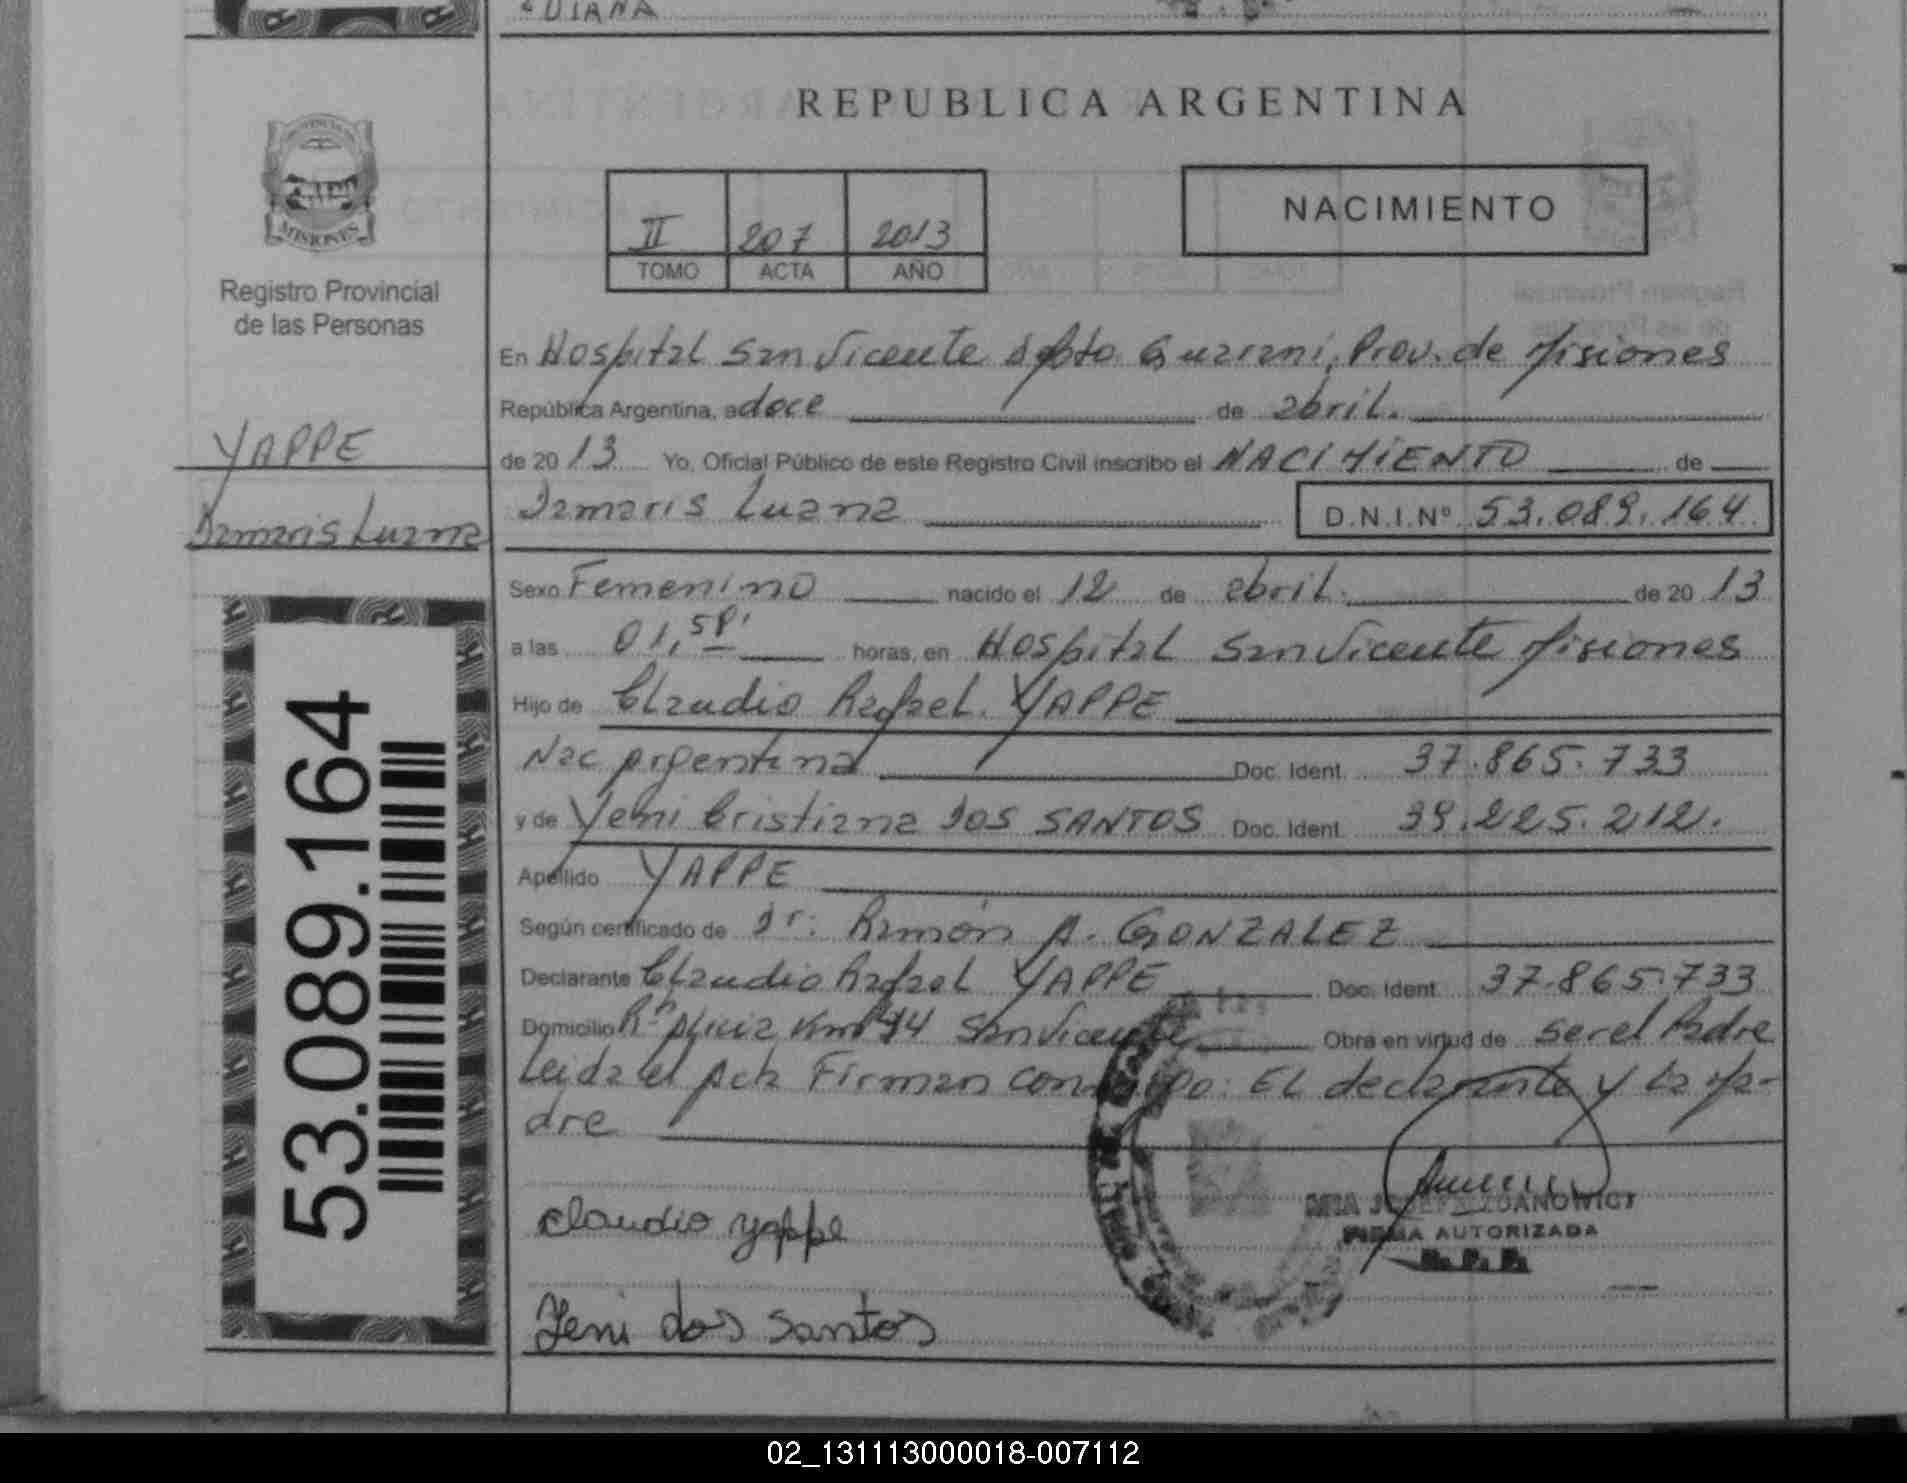 DIANA
REPUBLICA ARGENTINA
PROVINCIA DE
MISIONES
Registro Provincial
de las Personas
II 207 2013
TOMO ACTA AÑO
NACIMIENTO
En Hospital San Vicente Dpto Guarani, Prov. de Misiones
República Argentina, a doce de abril.
de 2013 Yo, Oficial Público de este Registro Civil inscribo el NACIMIENTO de
YAPPE
Damaris Luana D.N.I.Nº 53.089.164
Damaris Luana
Sexo Femenino nacido el 12 de abril. de 2013
a las 01,58' horas, en Hospital San Vicente Misiones
Hijo de Claudio Rafael YAPPE
Nac Argentina Doc. Ident. 37.865.733
y de Yeni Cristiana DOS SANTOS Doc. Ident. 39.225.212.
Apellido YAPPE
Según certificado de Dr. Ramón A. GONZALEZ
Declarante Claudio Rafael YAPPE Doc. Ident. 37.865.733
Domicilio Km San Vicente Obra en virtud de ser el Padre
Leida el Acta Firman conmigo: El declarante y la Ma-
dre
53.089.164
claudio yappe
FIRMA AUTORIZADA
R.P.P.
Yeni dos santos
02_131113000018-007112